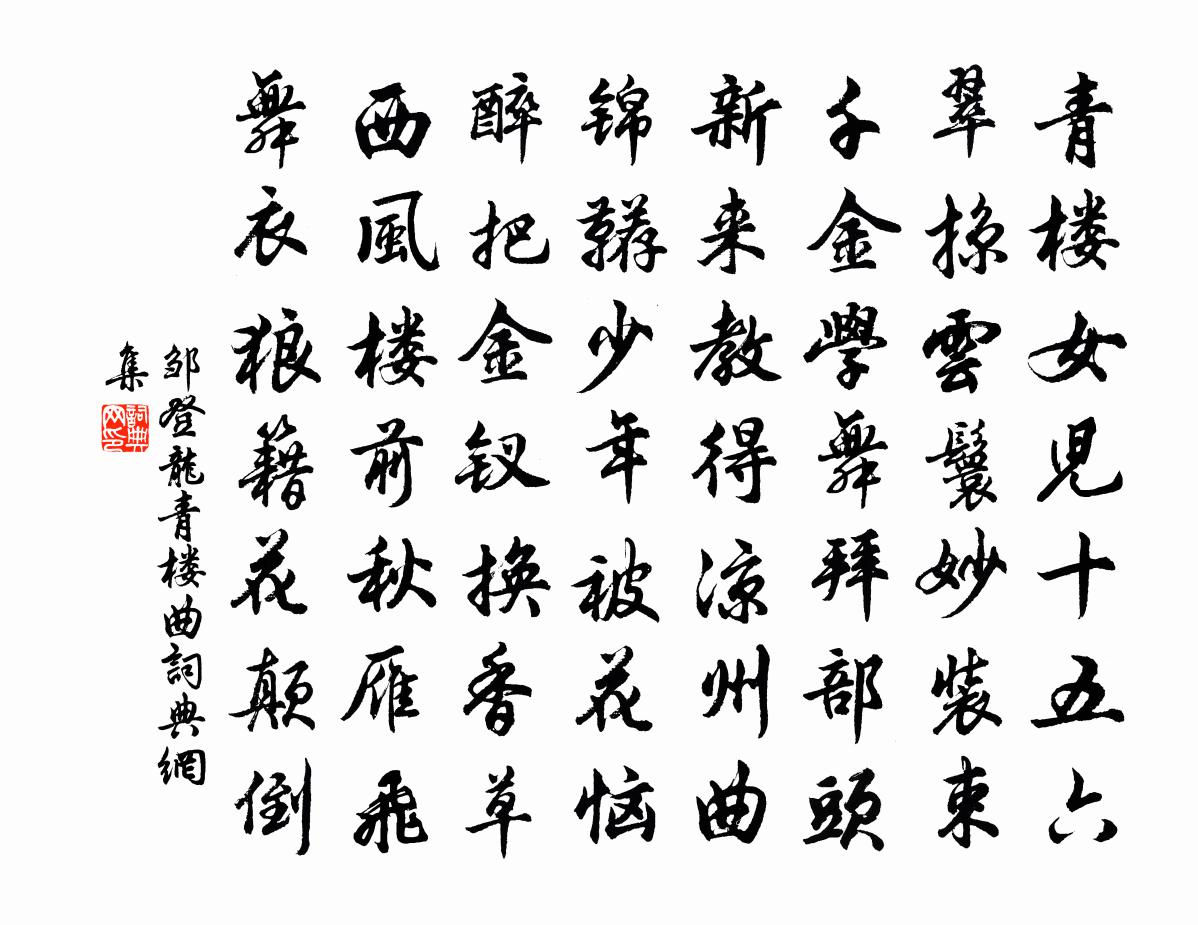 青楼女児十五六
翠掠雲鬟妙裝束
千金學舞拜部頭
新来教得凉州曲
锦韉少年被花恼
醉把金钗换香草
西風楼前秋雁飛
舞衣狼籍花颠倒
邹登龍青楼曲詞典網
集
詞典网印